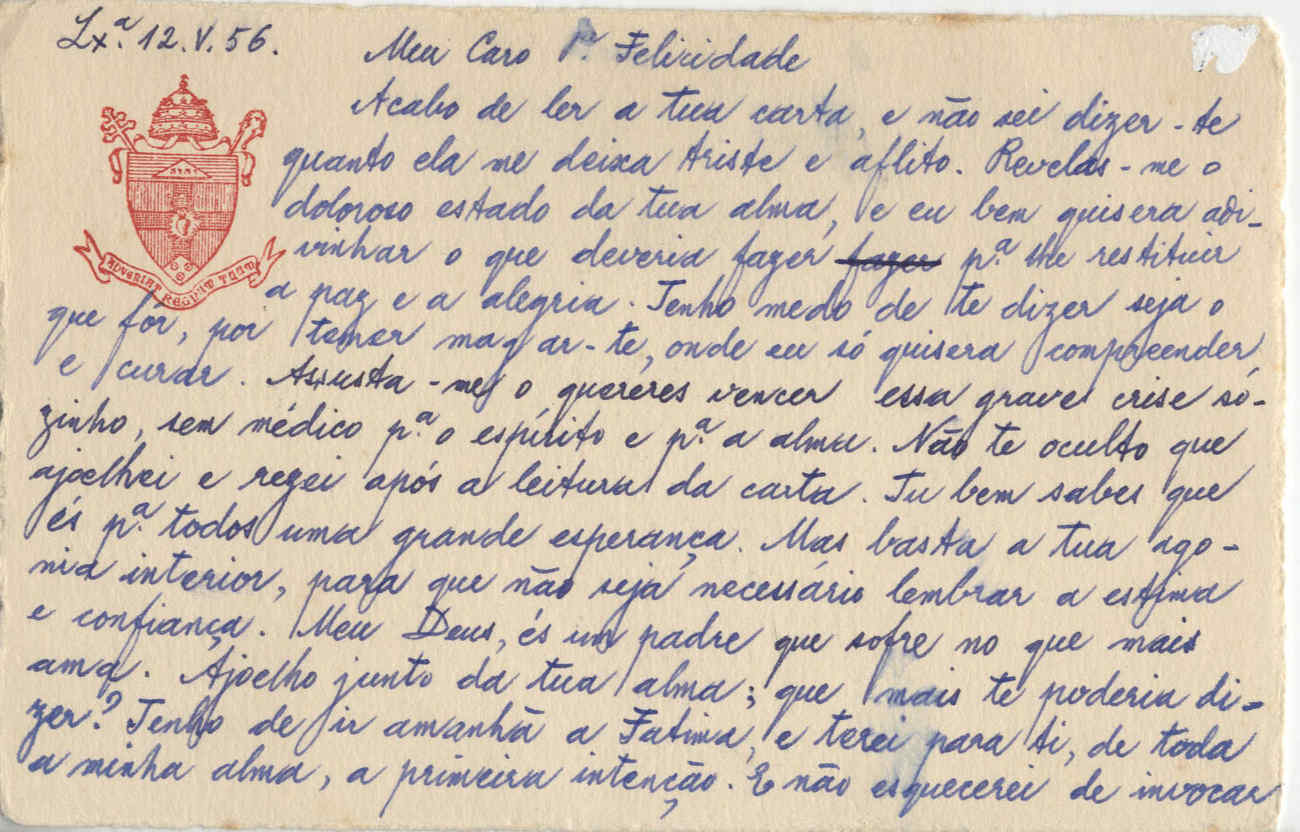 Lxª. 12.V.56.
Meu Caro Pª. Felicidade
Acabo de ler a tua carta, e não sei dizer-te
quanto ela me deixa triste e aflito. Revelas-me o
doloroso estado da tua alma, e eu bem quisera adi-
vinhar o que deveria fazer fazer pª. lhe restituir
a paz e a alegria. Tenho medo de te dizer seja o
que fôr, por temer magoar-te, onde eu só quisera compreender
e curar. Assusta-me o quereres vencer essa grave crise sò-
zinho, sem médico pª. o espírito e pª. a alma. Não te oculto que
ajoelhei e rezei após a leitura da carta. Tu bem sabes que
és pª. todos uma grande esperança. Mas basta a tua ago-
nia interior, para que não seja necessário lembrar a estima
e confiança. Meu Deus, és um padre que sofre no que mais
ama. Ajoelho junto da tua alma; que mais te poderia di-
zer? Tenho de ir amanhã a Fatima, e terei para ti, de toda
a minha alma, a primeira intenção. E não esquecerei de invocar
ADVENIAT REGNUM TUUM